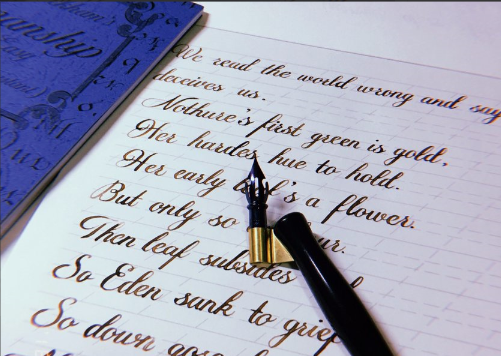 We read the world wrong and say
deceives us.
Nothure's first green is gold,
Her hardest hue to hold.
Her early leaf's a flower.
But only so
Then leaf subsides
So Eden sank to grief
So down